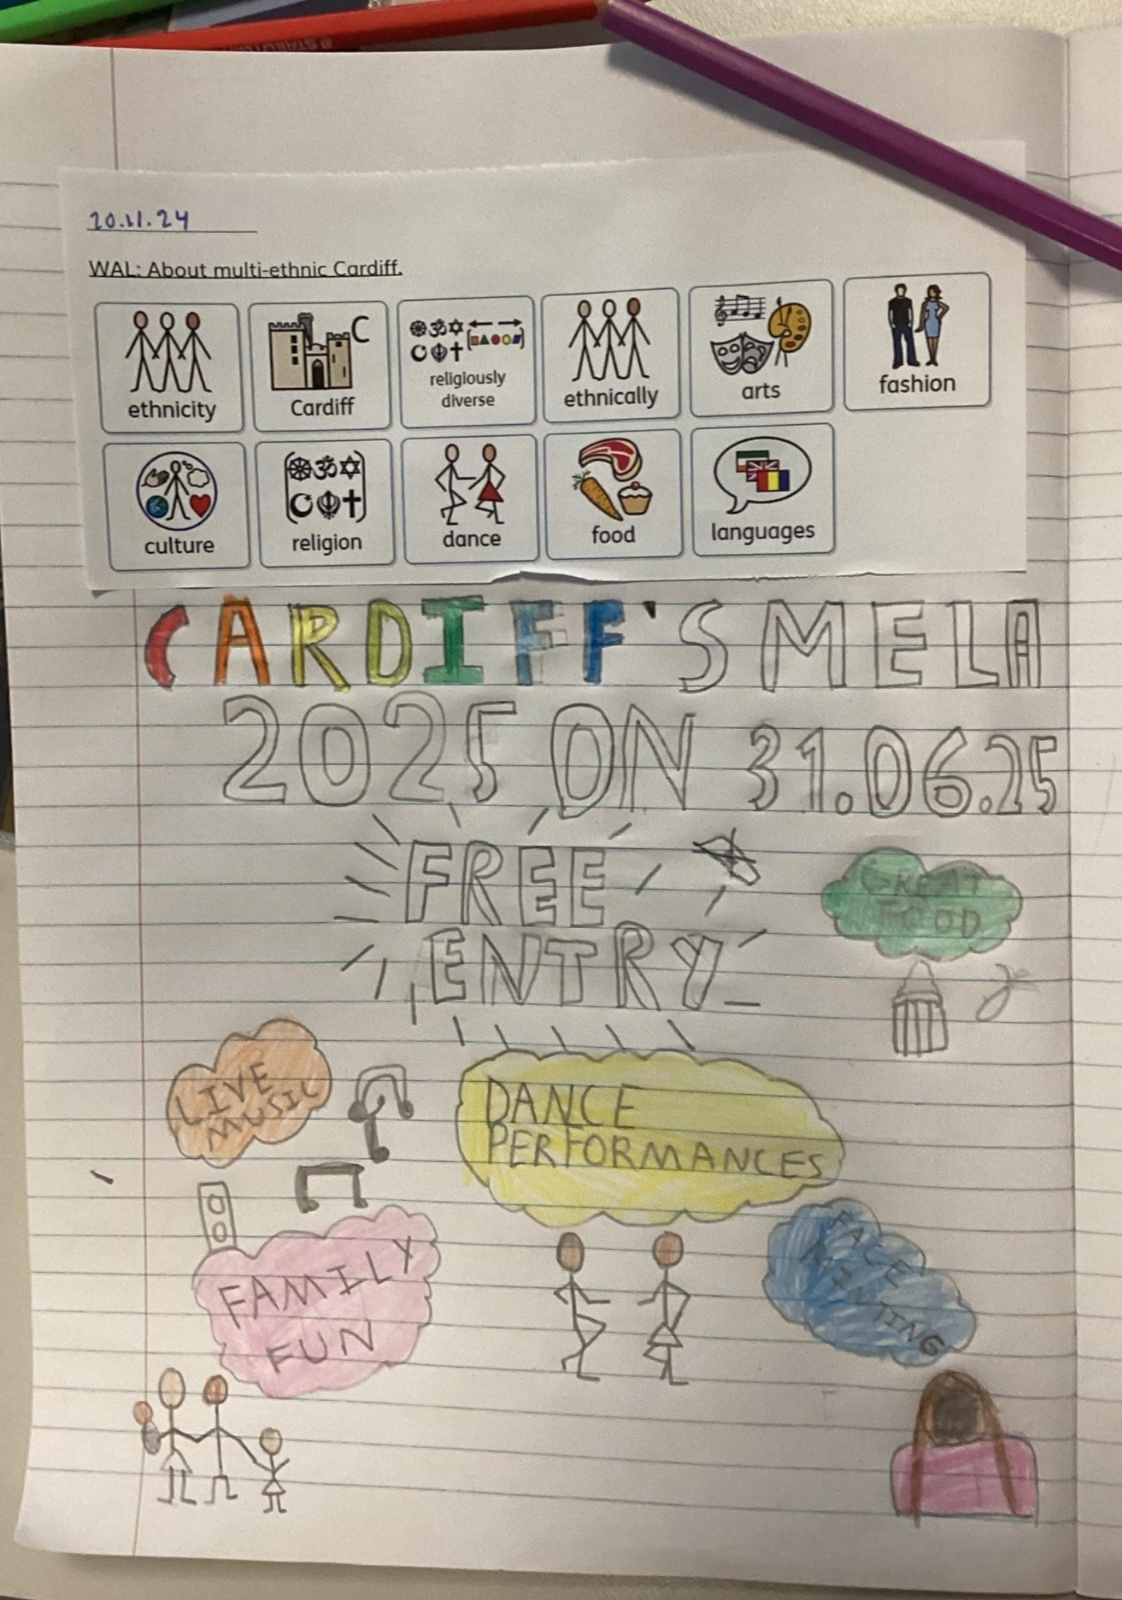 20.11.24
WAL: About multi-ethnic Cardiff.
C
ethnicity
Cardiff
religiously
diverse
ethnically
arts
fashion
culture
religion
dance
food
languages
CARDIFF'S MELA
2025 ON 31.06.25
FREE
ENTRY
GREAT
FOOD
LIVE
MUSIC
DANCE
PERFORMANCES
FAMILY
FUN
FACE